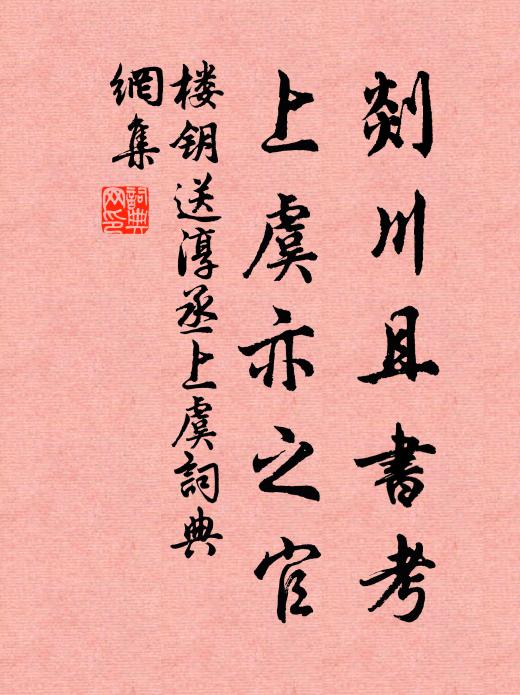 剡川且書考
上虞亦之官
楼钥送淳丞上虞詞典
網集
詞典
网印